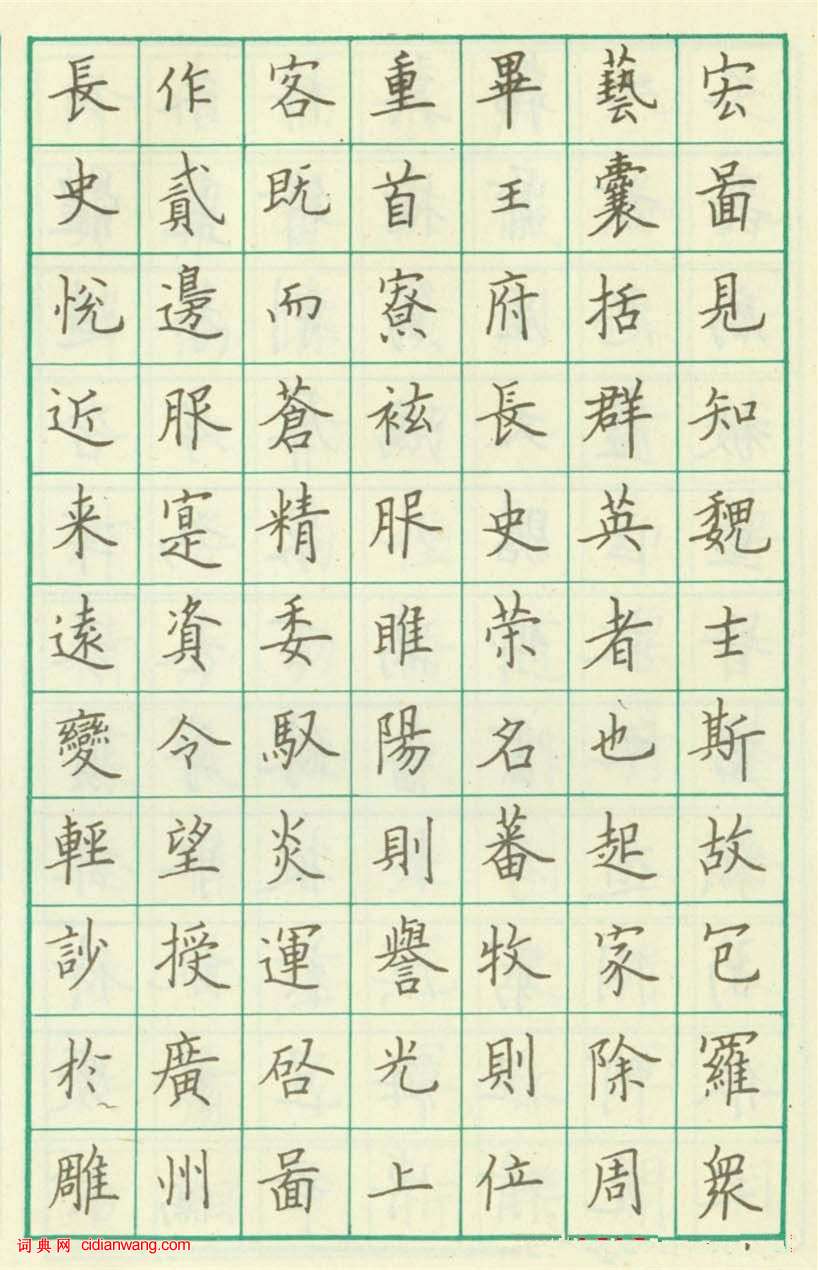 宏啚見知魏主斯故包羅衆
藝囊括群英者也起家除周
畢王府長史荣名蕃牧則位
重首寮袨服睢陽則譽光上
客既而蒼精委馭炎運啓啚
作貳邊服寔資令望授廣州
長史悅近来遠變輕訬於雕
词典网 cidianwang.com